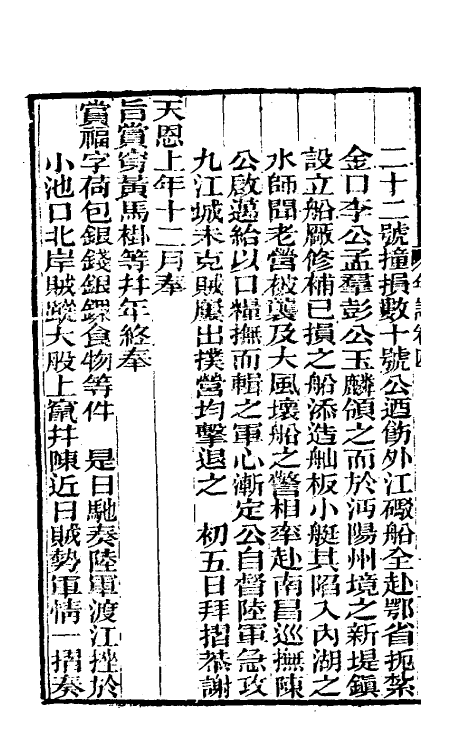 二十二號撞損數十號公迺飭外江礮船全赴鄂省扼紮
金口李公孟羣彭公玉麟領之而於沔陽州境之新堤鎮
設立船厰修補已損之船添造舢板小艇其陷入內湖之
水師聞老營被襲及大風壞船之警相率赴南昌巡撫陳
公啟邁給以口糧撫而輯之軍心漸定公自督陸軍急攻
九江城未克賊屢出撲營均擊退之　初五日拜摺恭謝
天恩上年十二月奉
旨賞穿黃馬褂等幷年終奉
賞福字荷包銀錢銀錁食物等件　是日馳奏陸軍渡江挫於
小池口北岸賊蹤大股上竄幷陳近日賊勢軍情一摺奏